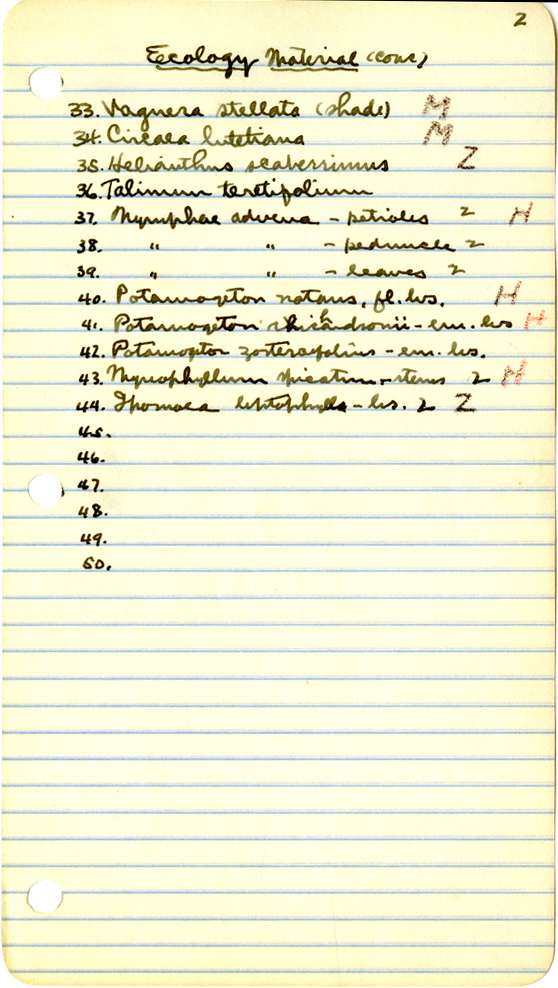 2
Ecology Material (cont)
33. Vagnera stellata (shade) M
34. Circaea lutetiana M
35. Helianthus scaberrimus Z
36. Talinum teretifolium
37. Nymphae advena - petioles 2 H
38. " " - peduncle 2
39. " " - leaves 2
40. Potamogeton natans, fl. lvs. H
41. Potamogeton richardsonii - em. lvs H
42. Potamogton zosteraefolius - em. lvs.
43. Myriophyllum spicatum - stems 2 H
44. Ipomoea leptophylla - lvs. 2 Z
45.
46.
47.
48.
49.
50.